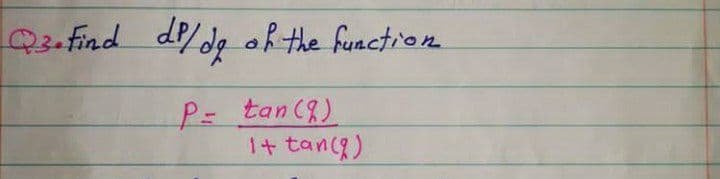 Q3. Find dP/dq of the function
P = tan(q)
1 + tan(q)